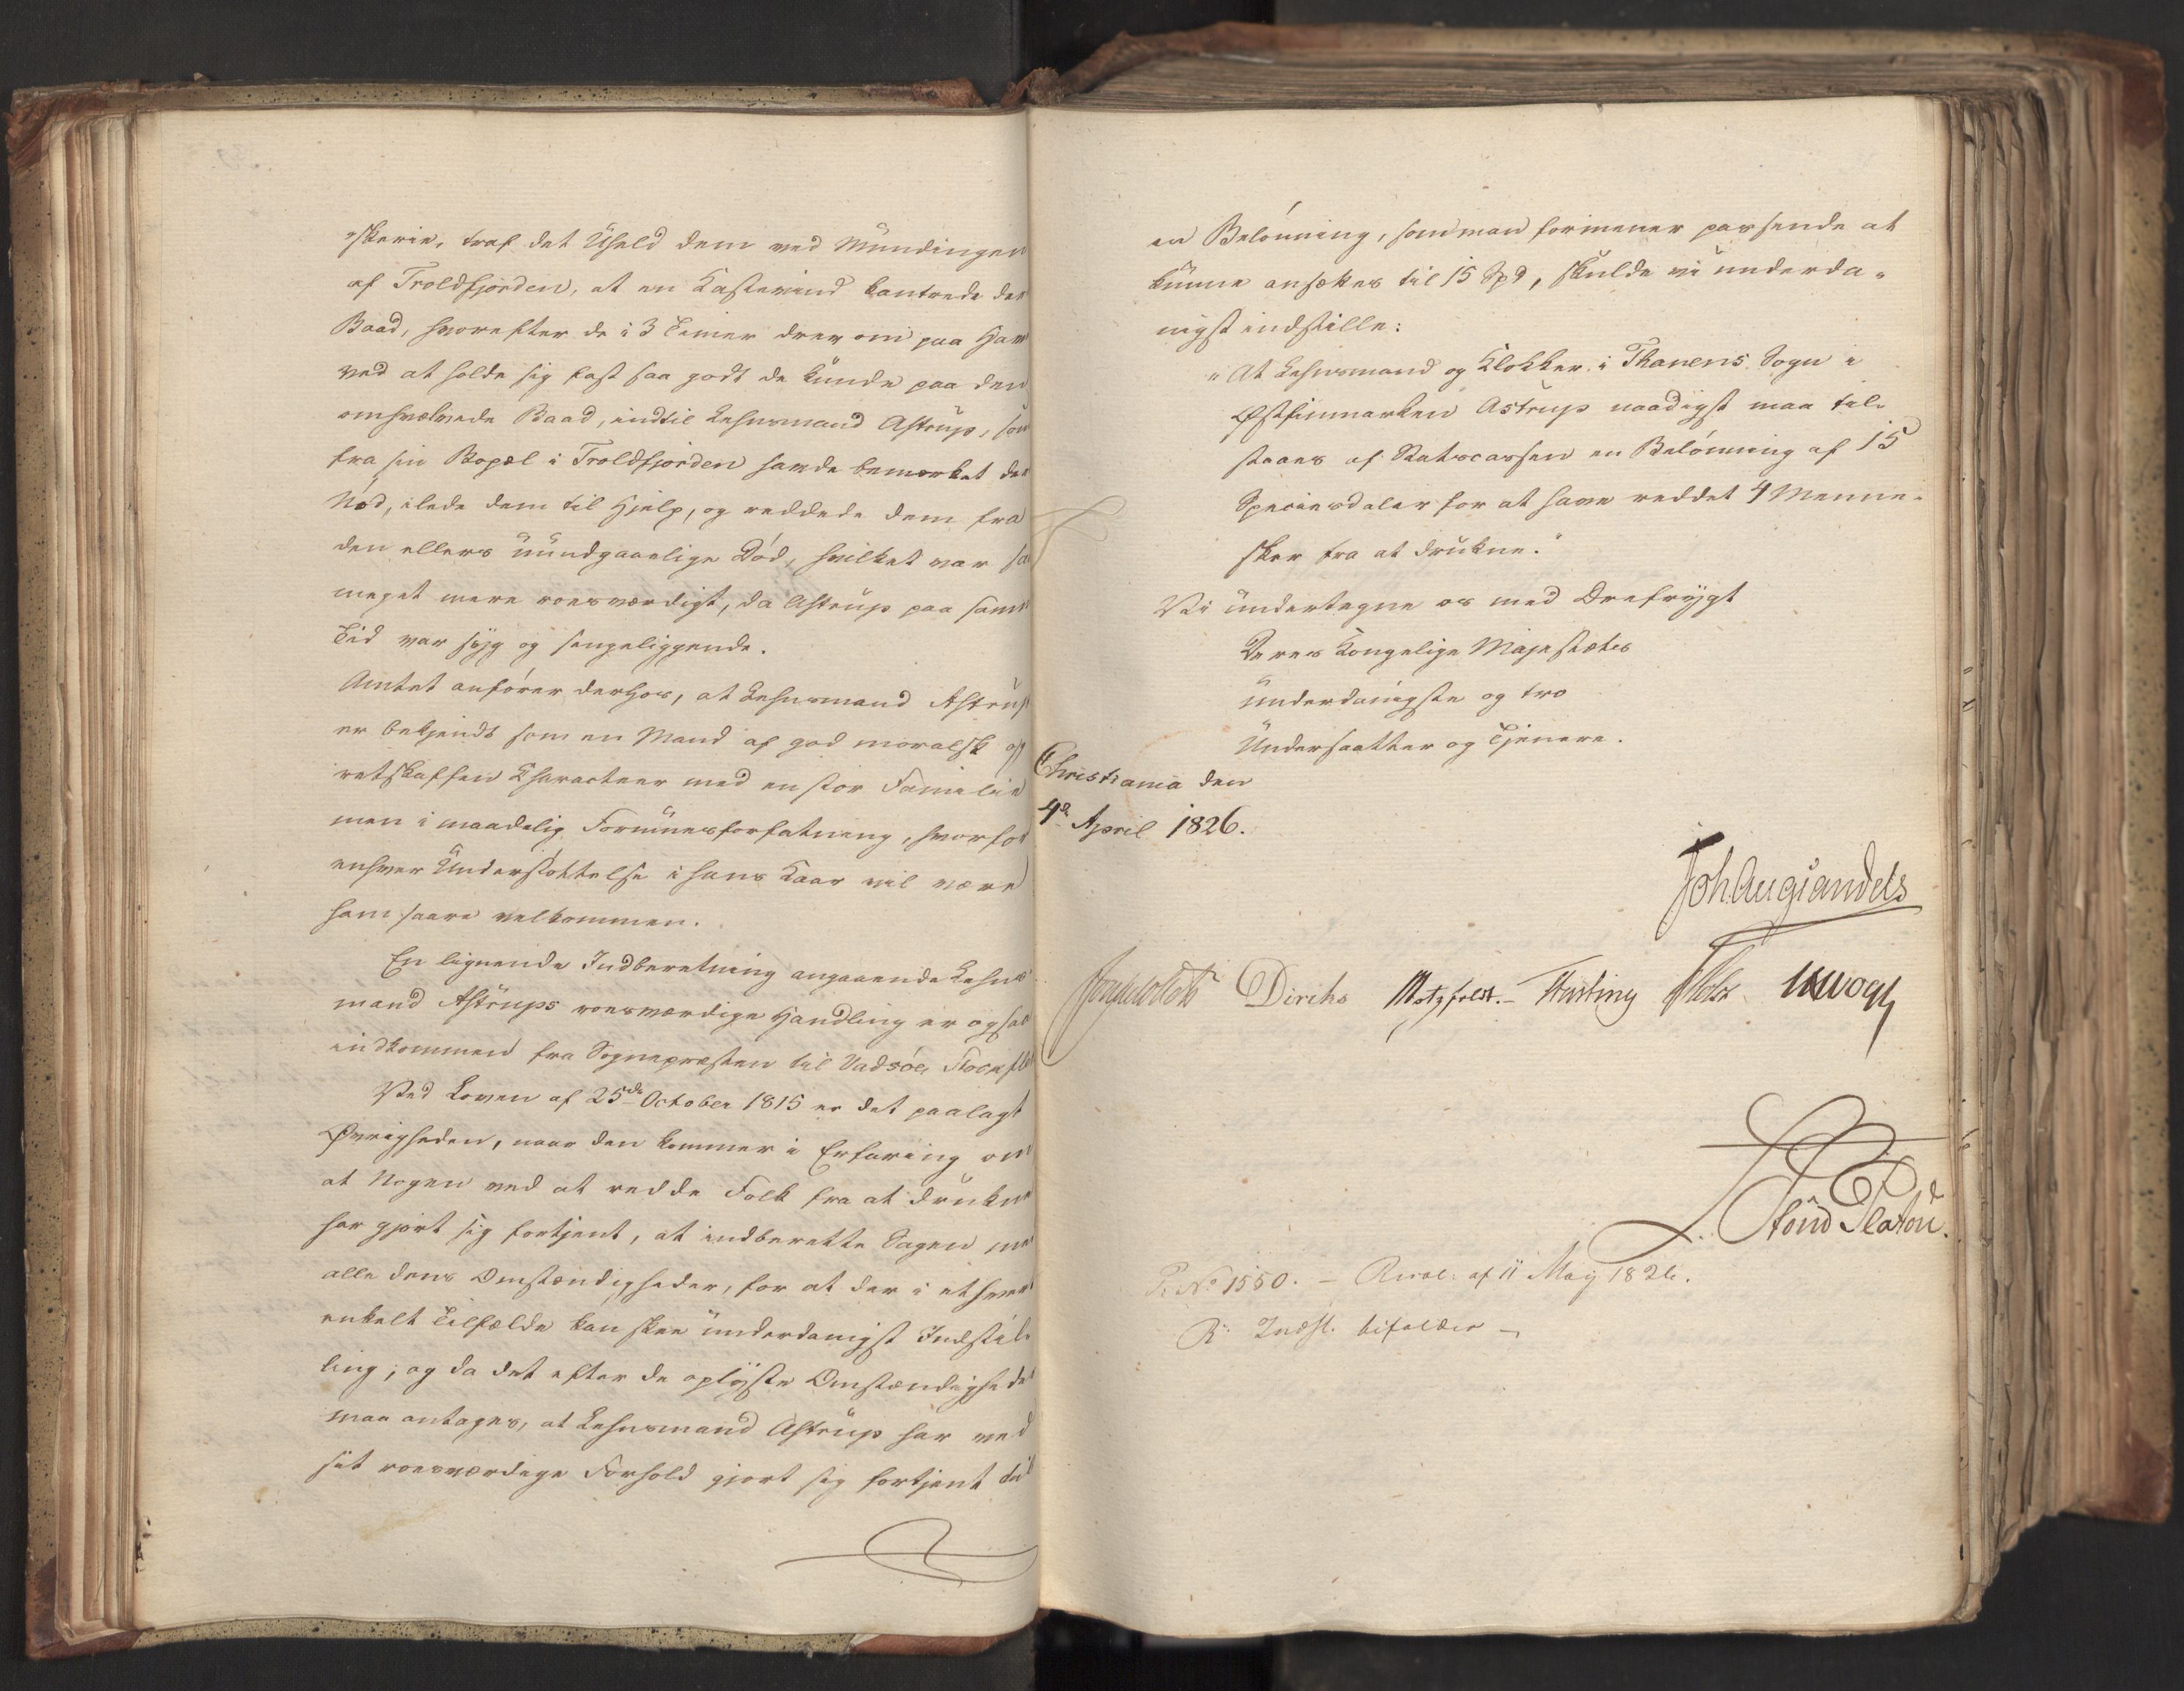 skerie, traf det Uheld dem ved Mundingen
af Troldfjorden, at en Kastevind kantrede der
Baad, hvorefter de i 3 Timer drev om paa Hav
ved at holde sig fast saa godt de kunde paa den
omhvælvede Baad, indtil Lehnsmand Astrup, som
fra sin Bopæl i Troldfjorden havde bemærket der
Nød, ilede dem til Hjelp, og reddede dem fra
den ellers uundgaaelige Død, hvilket var saa
meget mere roesværdigt, da Astrup paa samme
Tid var syg og sengeliggende.
Amtet anfører derhos, at Lehnsmand Astrup
er bekjendt som en Mand af god moralsk og
retskaffen Characteer med en stor Familie
men i maadelig Formuesforfatning, hvorfor
enhver Understøttelse i hans Kaar vil være
ham saare velkommen.
En lignende Indberetning angaaende Lehns
mand Astrups roesværdige Handling er ogsaa
indkommen fra Sognepræsten til Vadsøe, Stockfle
Ved Loven af 25de October 1815 er det paalagt
Øvrigheden, naar den kommer i Erfaring om
at Nogen ved at redde Folk fra at drukne
har gjort sig fortjent, at indberette Sagen med
alle dens Omstændigheder, for at der i ethvert
enkelt Tilfælde kan skee underdanigst Indstil-
ling; og da det efter de oplyste Omstændigheder
maa antages, at Lehnsmand Astrup har ved
sit roesværdige Forhold gjort sig fortjent til
en Belønning, som man formener passende at
kunne ansættes til 15 Spd, skulde vi underda-
nigst indstille:
"At Lehnsmand og Klokker i Thanens Sogn i
Østfinmarken Astrup naadigst maa til-
staaes af Statscassen en Belønning af 15
Speciesdaler for at have reddet 4 Menne-
sker fra at drukne."
Vi undertegne os med Ærefrygt
Deres Kongelige Majestæts
underdanigste og tro
Undersaatter og Tjenere.
Christiania den
4de April 1826.
Joh. Aug. Sandels
Diriks Motzfeldt. Holst
Stoud Platou.
P: No 1550. – Resol: af 11 May 1826.
R: Indst. bifaldes –